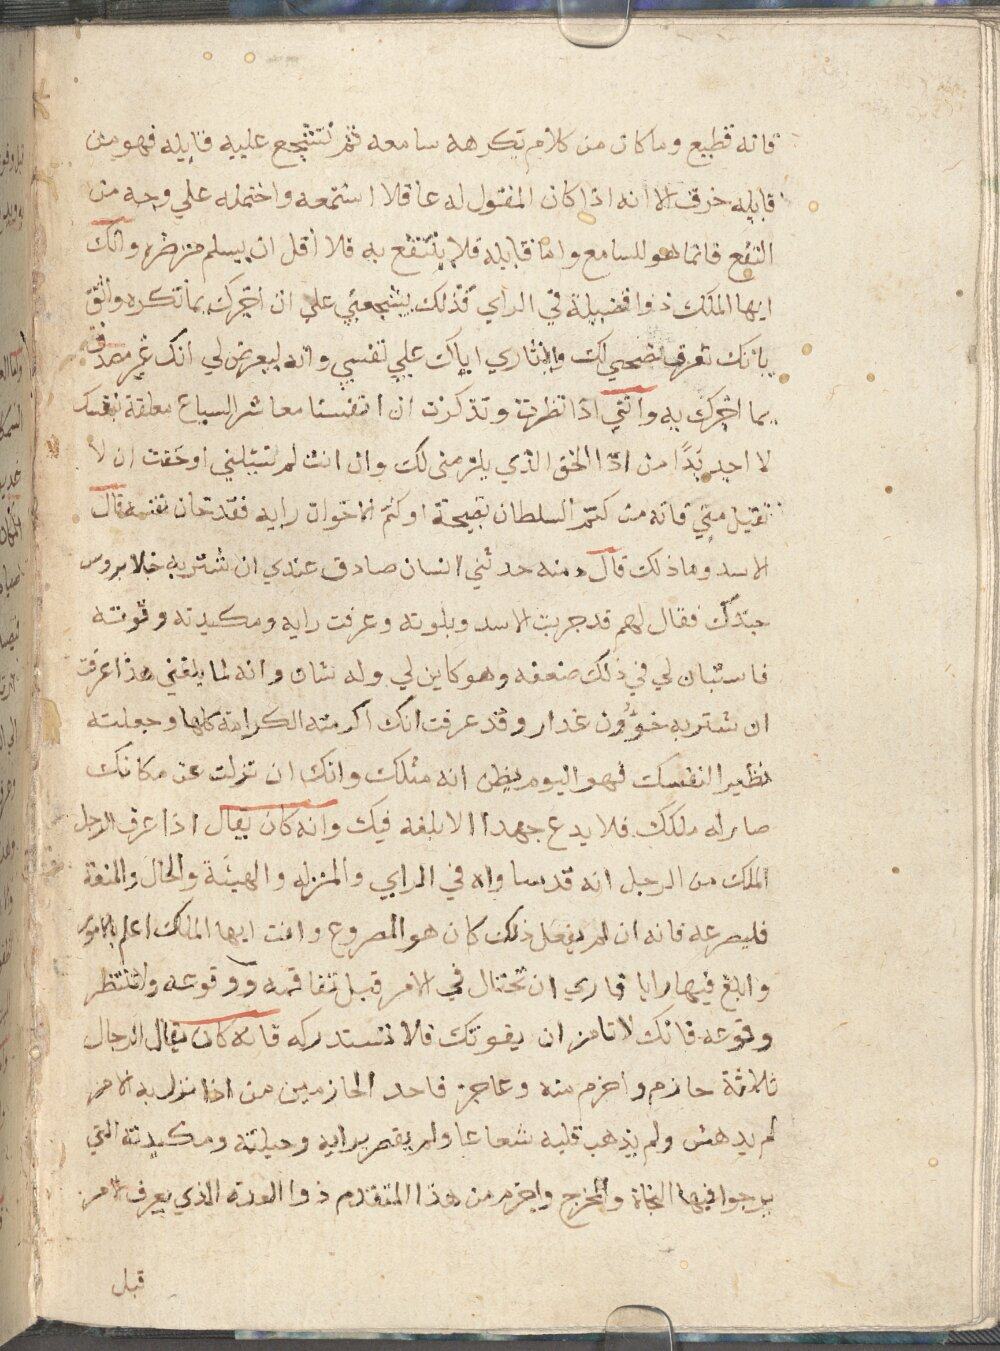 فانه فظيع وما كان من كلام يكرهه سامعه ثم تشجع عليه قايله فهو من
قايله خرق الا انه اذا كان المقول له عاقلا استمعه واحتمله علي وجه من
النفع فانما هو للسامع واما قايله فلا ينتفع به فلا أقل ان يسلم من ضره وانك
ايها الملك ذوا فضيلة في الراي فذلك يشجعني علي ان اخبرك بما تكره واثق
بانك تعرف نصحي لك وايثاري اياك علي نفسي وانه ليعرض لي انك غير مصدق
بما اخبرك به وانني اذا نظرت وتذكرت ان انفسنا معاشر السباع معلقة بنفسك
لا اجد بُدًّا من ادا الحق الذي يلزمني لك وان انت لم تسيلني او خفت ان لا
تقبل مني فانه من كتم السلطان نصيحة او كتم الاخوان رايه فقد خان نفسه قال
الاسد وما ذلك قال دمنه حدثني انسان صادق عندي ان شتربه خلا بروس
جندك فقال لهم قد جربت الاسد وبلوته وعرفت رايه ومكيدته وقوته
فاستبان لي في ذلك ضعفه وهو كاين لي وله شان وانه لما بلغني هذا عرفت
ان شتربه خوُون غدار وقد عرفت انك اكرمته الكرامة كلها وجعلته
نظيرا لنفسك فهو اليوم يظن انه مثلك وانك ان نزلت عن مكانك
صار له ملكك فلا يدع جهدا الا بلغه فيك وانه كان يقال اذا عرف الرجل
الملك من الرجل انه قد ساواه في الراي والمنزله والهيئة والحال والمنعة
فليصرعه فانه ان لم يفعل ذلك كان هو المصروع وانت ايها الملك اعلم بالامور
وابلغ فيها رايا فاري ان تحتال في الامر قبل تفاقمه ووقوعه ولا تنتظر
وقوعه فانك لا تامن ان يفوتك فلا تستدركه فانه كان يقال الرجال
ثلاثة حازم واحزم منه وعاجز فاحد الحازمين من اذا نزل به الامر
لم يدهش ولم يذهب قلبه شعاعا ولم يقصر برايه وحيلته ومكيدته التي
يرجوا فيها النجاة والمخرج واحزم من هذا المتقدم ذوا العدة الذي يعرف الامر
قبل